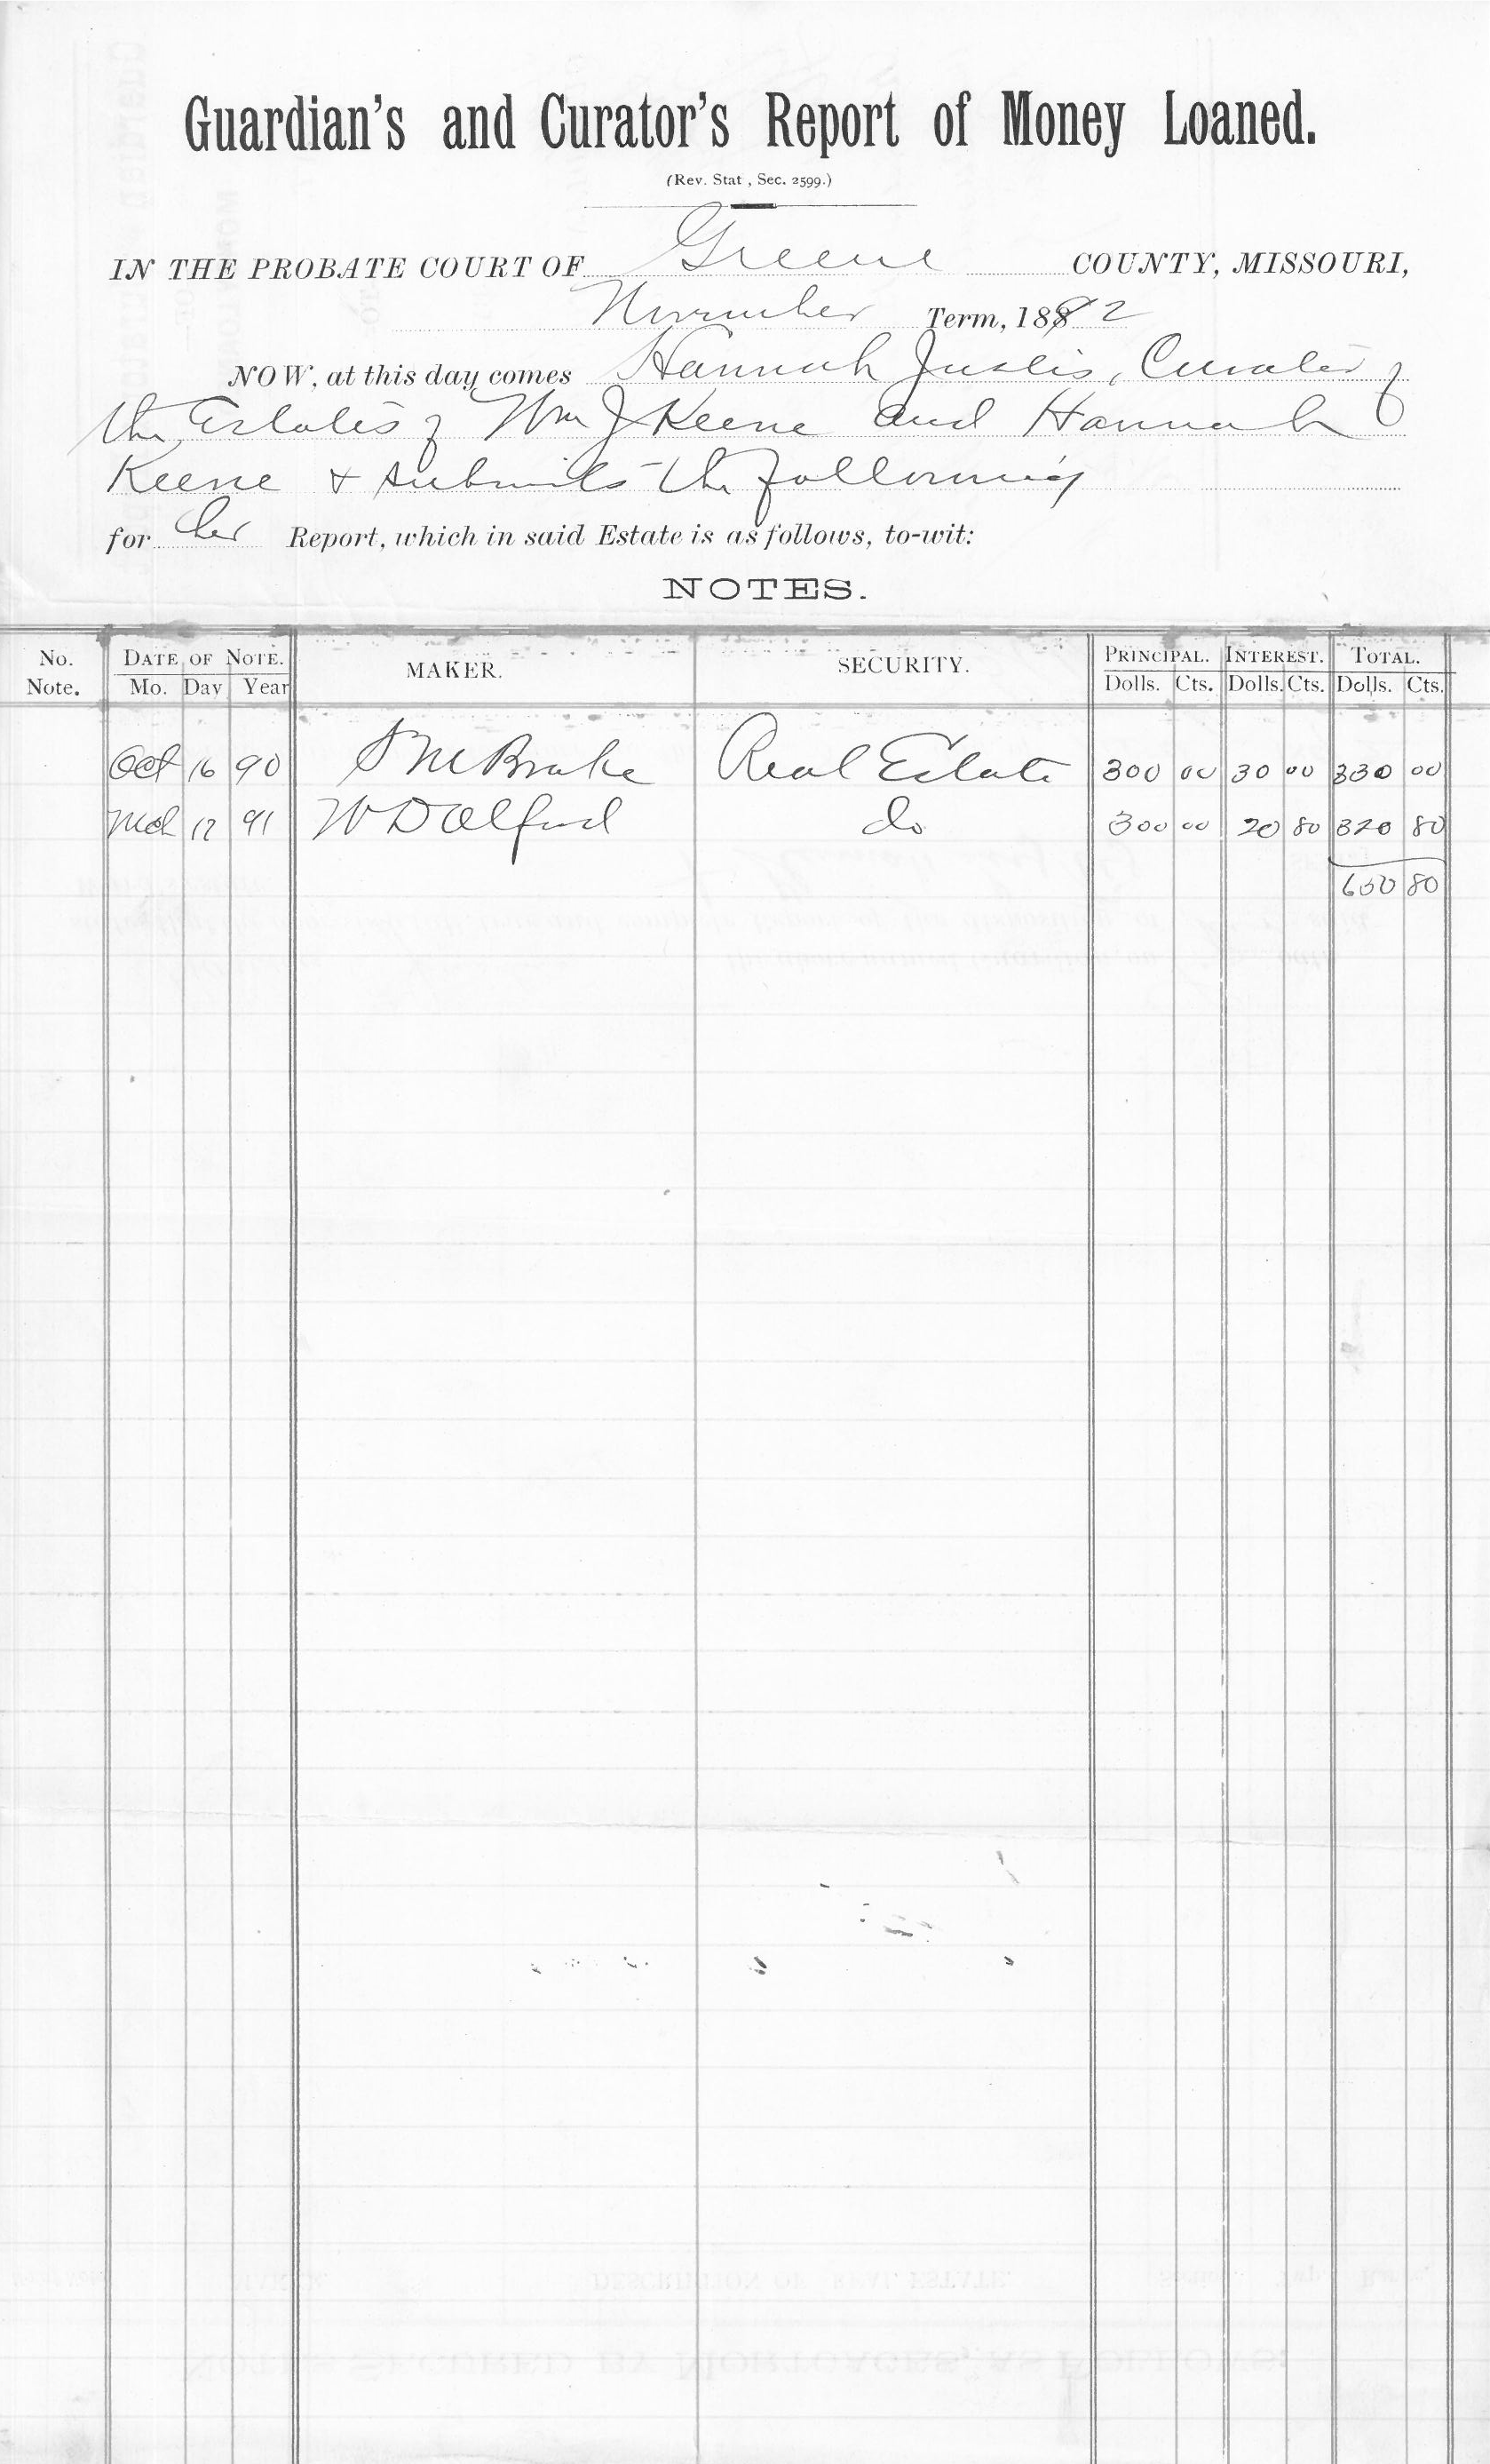 Guardian's and Curator's Report of Money Loaned.
(Rev. Stat , Sec. 2599.)
IN THE PROBATE COURT OF Greene COUNTY, MISSOURI,
November Term, 1892
NOW, at this day comes Hannah Justis, Curator of
the Estates of Wm J Keene and Hannah
Keene & submits the following
for her Report, which in said Estate is as follows, to-wit:
NOTES.
No. Note. DATE OF NOTE. MAKER. SECURITY. PRINCIPAL. INTEREST. TOTAL.
Mo. Day Year Dolls. Cts. Dolls. Cts. Dolls. Cts.
Oct 16 90 S M Brake Real Estate 300 00 30 00 330 00
Mch 17 91 W D Alford do 300 00 20 80 320 80
650 80